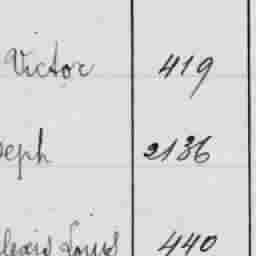 Victor 419
eph 2136
lexis Louis 440